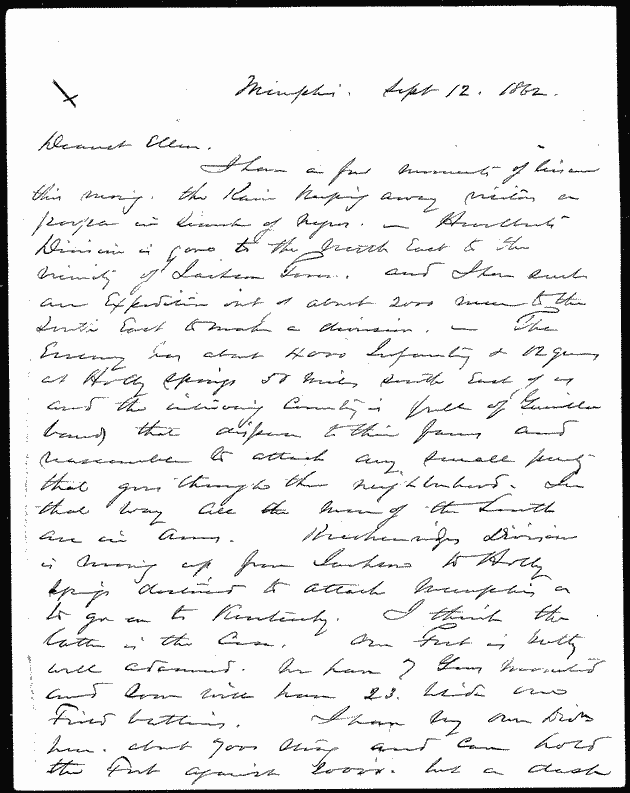 Memphis. Sept 12. 1862.
Dearest Ellen.
I have a few moments of leisure
this morng. the Rain keeping away visitors or
people in search of negros. — Hurlbuts
Division is gone to the North East to the
vicinity of Jackson Tenn. and I have such
an Expedition out of about 2000 men to the
South East to make a diversion. — The
Enemy has about 4000 Infantry & 12 guns
at Holly Springs 50 miles South East of us
and the intervening County is full of Guerilla
bands that disperse to their farms and
reassemble to attack any small party
that goes through the neighborhood. In
that way all the men of the South
are in Arms. Breckenridges Division
is moving up from Jackson to Holly
Springs destined to attack Memphis or
to go on to Kentucky. I think the
latter is the Case. Our Fort is pretty
well advanced. We have 7 Guns mounted
and soon will have 23. beside our
Field batteries. I have my own Divn
here. about 7000 strong and can hold
the Fort against 20000. but a dash